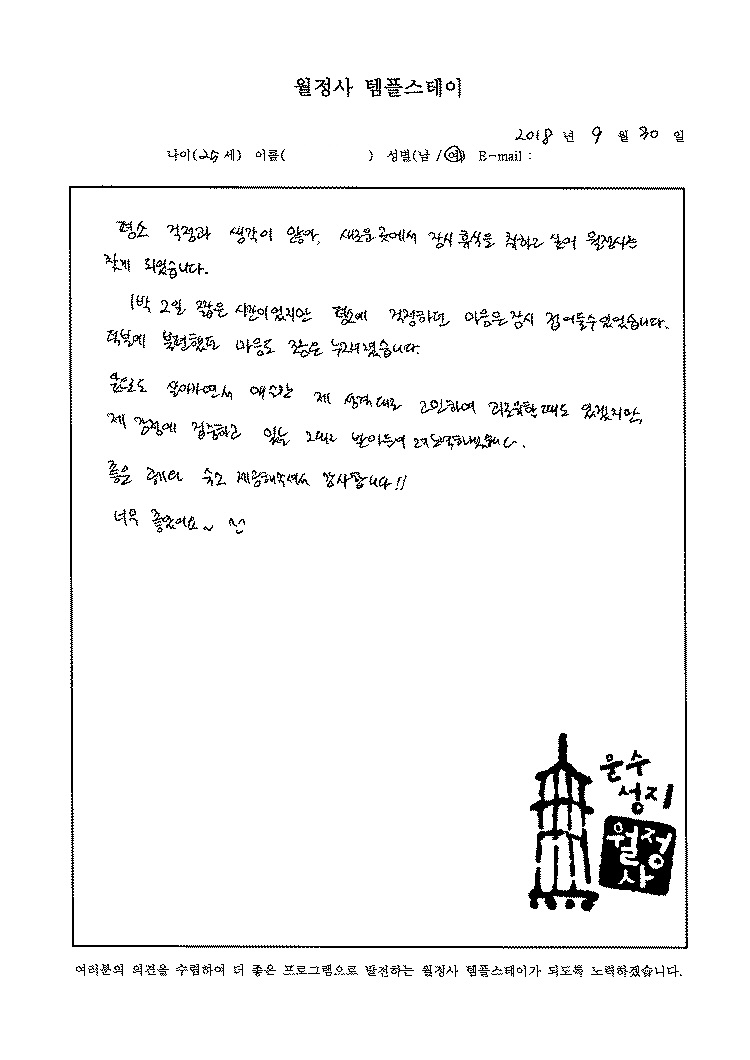 월정사 템플스테이
2018 년 9 월 30 일
나이(25 세) 이름( ) 성별(남 / 여) E-mail :
평소 걱정과 생각이 많아, 새로운 곳에서 잠시 휴식을 취하고 싶어 월정사를
찾게 되었습니다.
1박 2일 짧은 시간이었지만 평소에 걱정하던 마음은 잠시 접어둘수있었습니다.
덕분에 불편했던 마음도 조금은 누그러졌습니다.
앞으로도 살아가면서 예민한 제 성격대로 고민하며 괴로울때도 있겠지만,
제 감정에 집중하고 있는 그대로 받아들여
좋은 숙소 제공해주셔서 감사합니다!!
너무 좋았어요~
문수
성지
월정
사
여러분의 의견을 수렴하여 더 좋은 프로그램으로 발전하는 월정사 템플스테이가 되도록 노력하겠습니다.